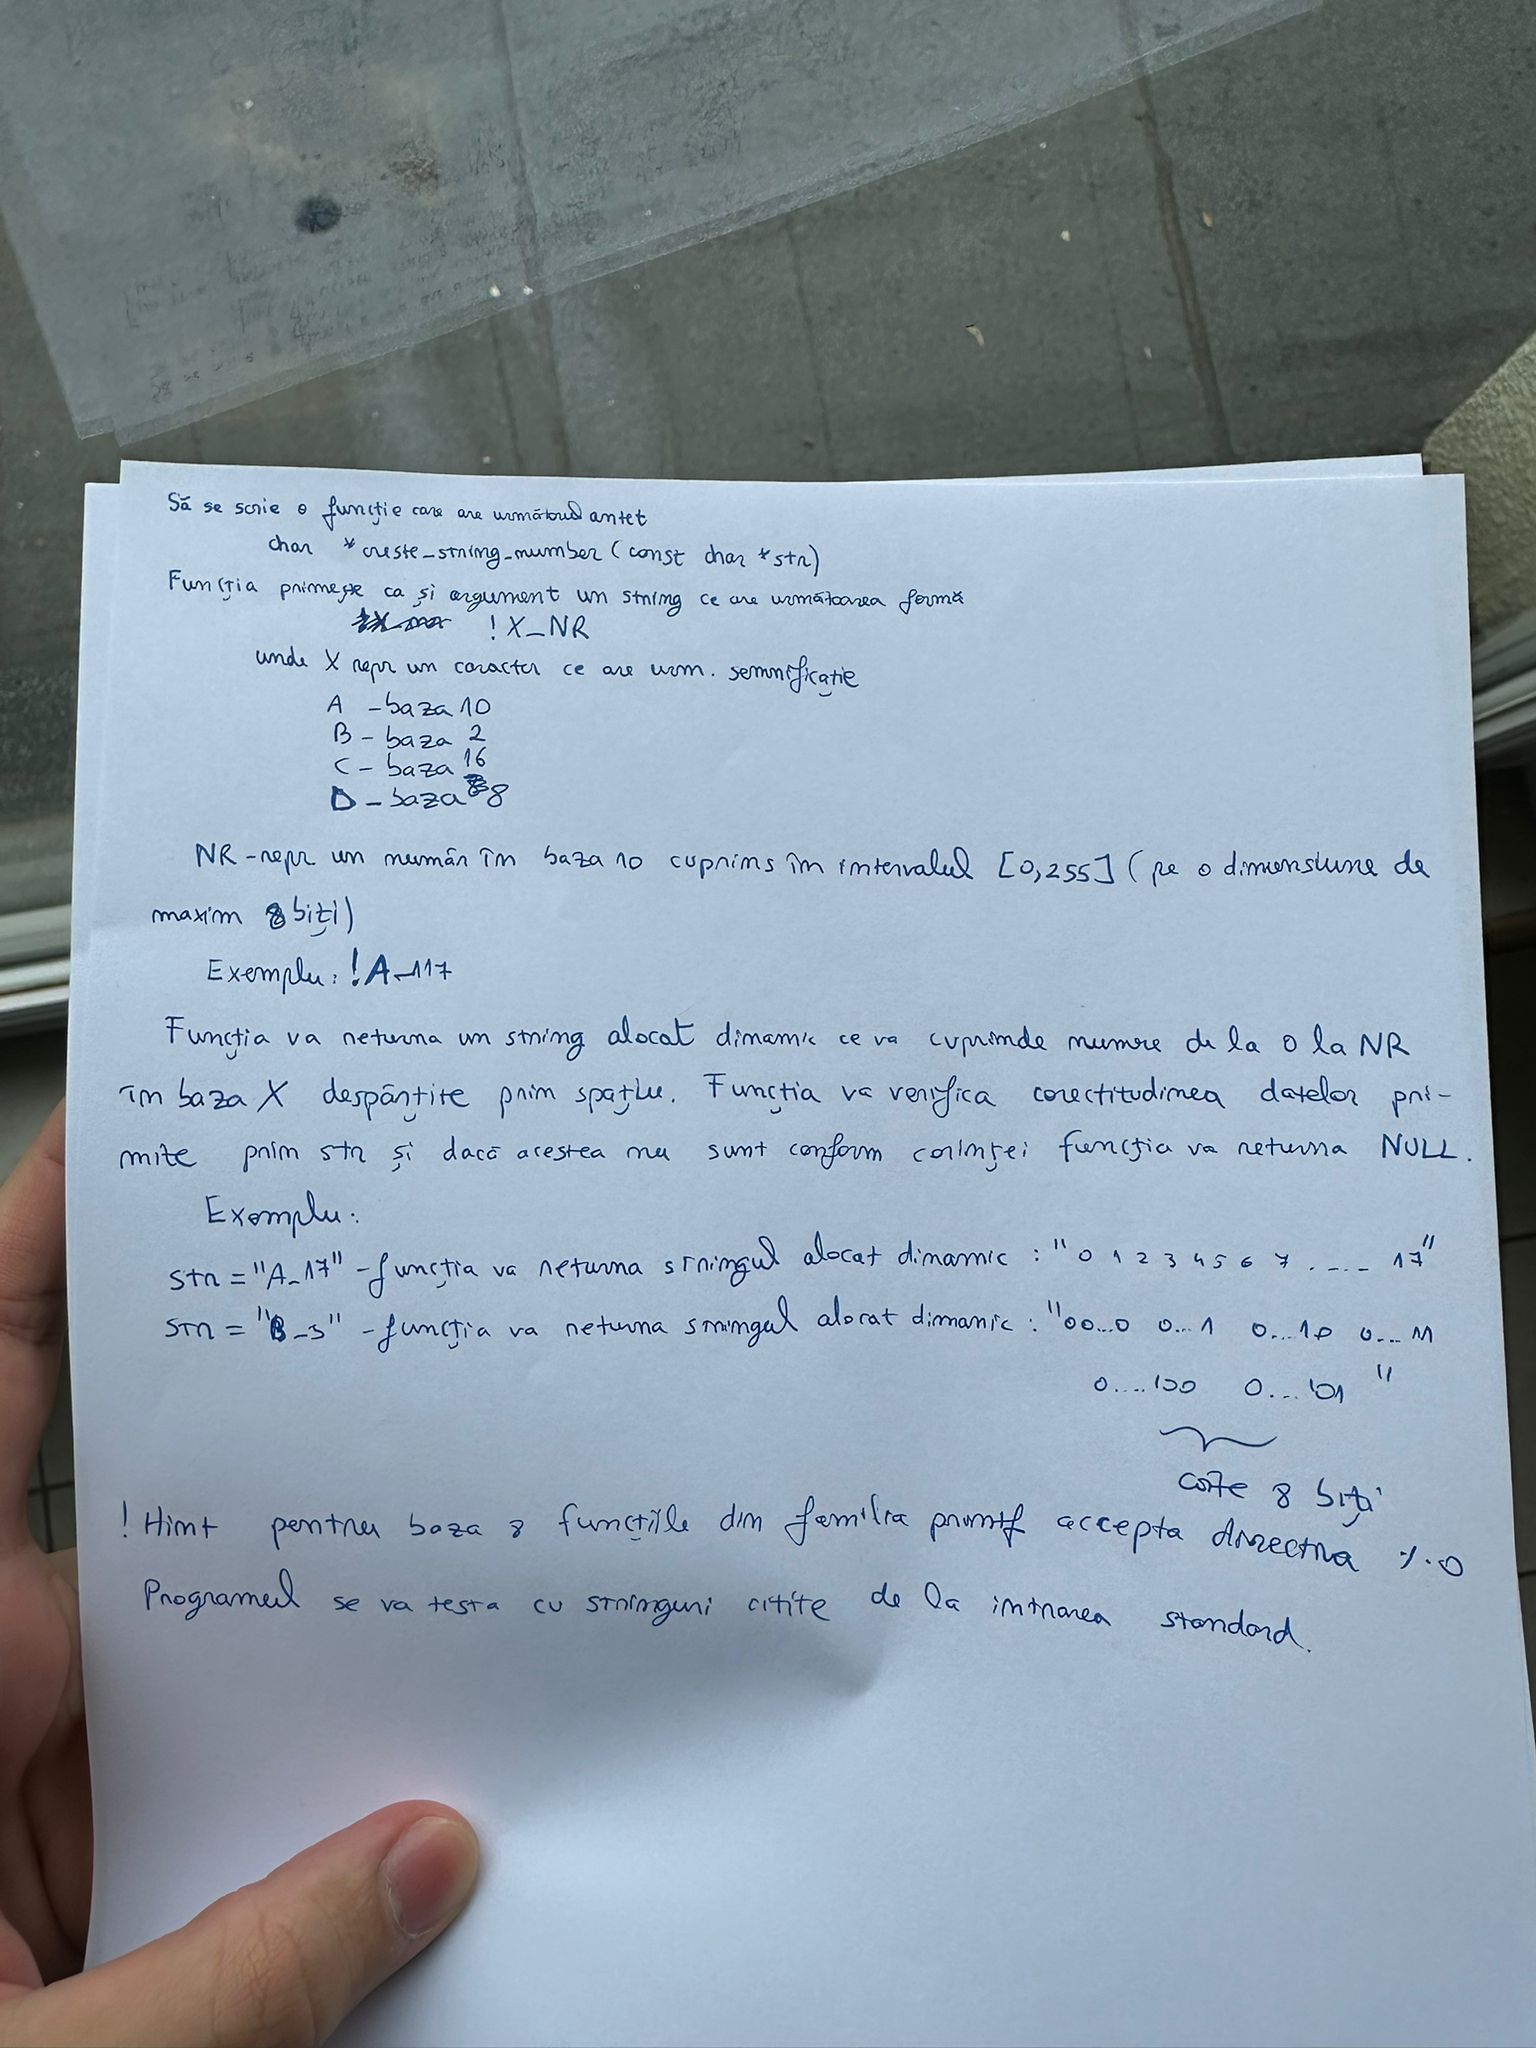 Să se scrie o funcție care are următorul antet
char *creste_string_number (const char *str)
Funcția primește ca și argument un string ce are următoarea formă
!X_NR
unde X repr un caracter ce are urm. semnificație
A - baza 10
B - baza 2
C - baza 16
D - baza 8
NR - repr un număr în baza 10 cuprins în intervalul [0,255] (pe o dimensiune de
maxim 8 biți)
Exemplu: !A_117
Funcția va returna un string alocat dinamic ce va cuprinde numere de la 0 la NR
în baza X despărțite prin spațiu. Funcția va verifica corectitudinea datelor pri-
mite prin str și dacă acestea nu sunt conform cerinței funcția va returna NULL.
Exemplu:
str = "A_17" - funcția va returna stringul alocat dinamic : "0 1 2 3 4 5 6 7 ..... 17"
str = "B_5" - funcția va returna stringul alocat dinamic : "00...0 0...1 0...10 0...11
0....100 0...101 "
cate 8 biți
! Hint pentru baza 8 funcțiile din familia printf accepta directiva %o
Programul se va testa cu stringuri citite de la intrarea standard.